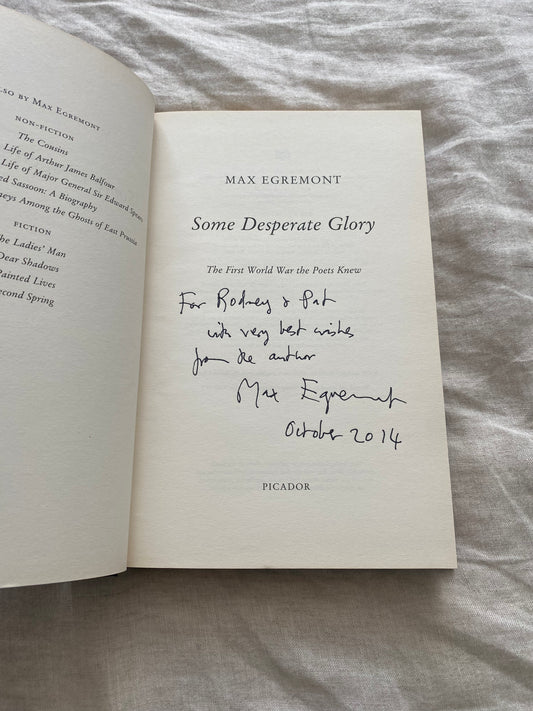 LSO BY MAX EGREMONT
NON-FICTION
The Cousins
Life of Arthur James Balfour
Life of Major General Sir Edward Spears
ed Sassoon: A Biography
neys Among the Ghosts of East Prussia
FICTION
he Ladies' Man
Dear Shadows
ainted Lives
econd Spring
MAX EGREMONT
Some Desperate Glory
The First World War the Poets Knew
For Rodney & Pat
with very best wishes
from the author
Max Egremont
October 2014
PICADOR